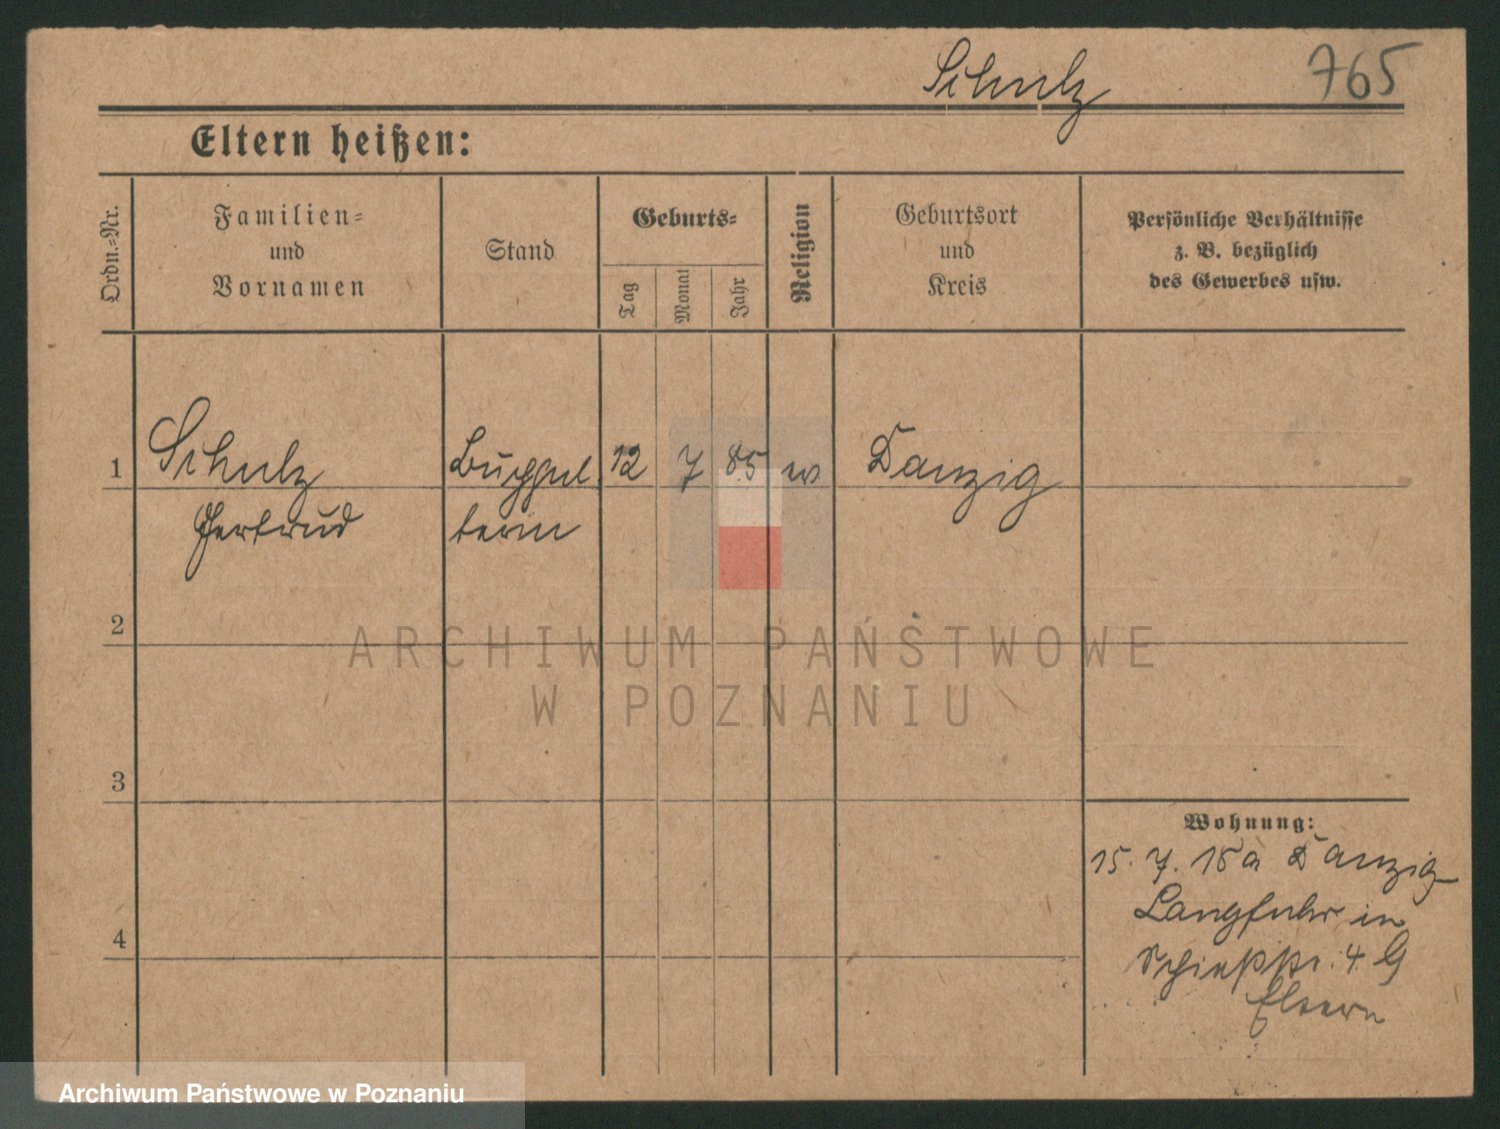 Schulz 765
Eltern heißen:
Ordn.-Nr.
Familien-
und
Vornamen
Stand
Geburts-
Tag
Monat
Jahr
Religion
Geburtsort
und
Kreis
Persönliche Verhältnisse
z. B. bezüglich
des Gewerbes usw.
1 Schulz 12 7 85 Danzig
Gertrud
2
ARCHIWUM PAŃSTWOWE
W POZNANIU
3
Wohnung:
15. 7. 18 a Danzig
Langfuhr in
4 4. G
Eltern
Archiwum Państwowe w Poznaniu